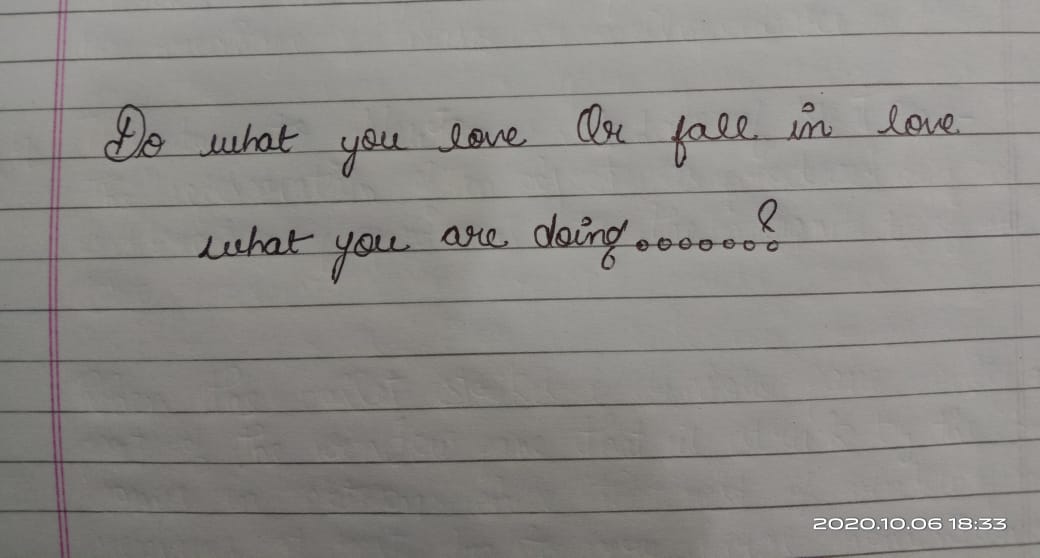 Do what you love Or fall in love
what you are doing.......?
2020.10.06 18:33